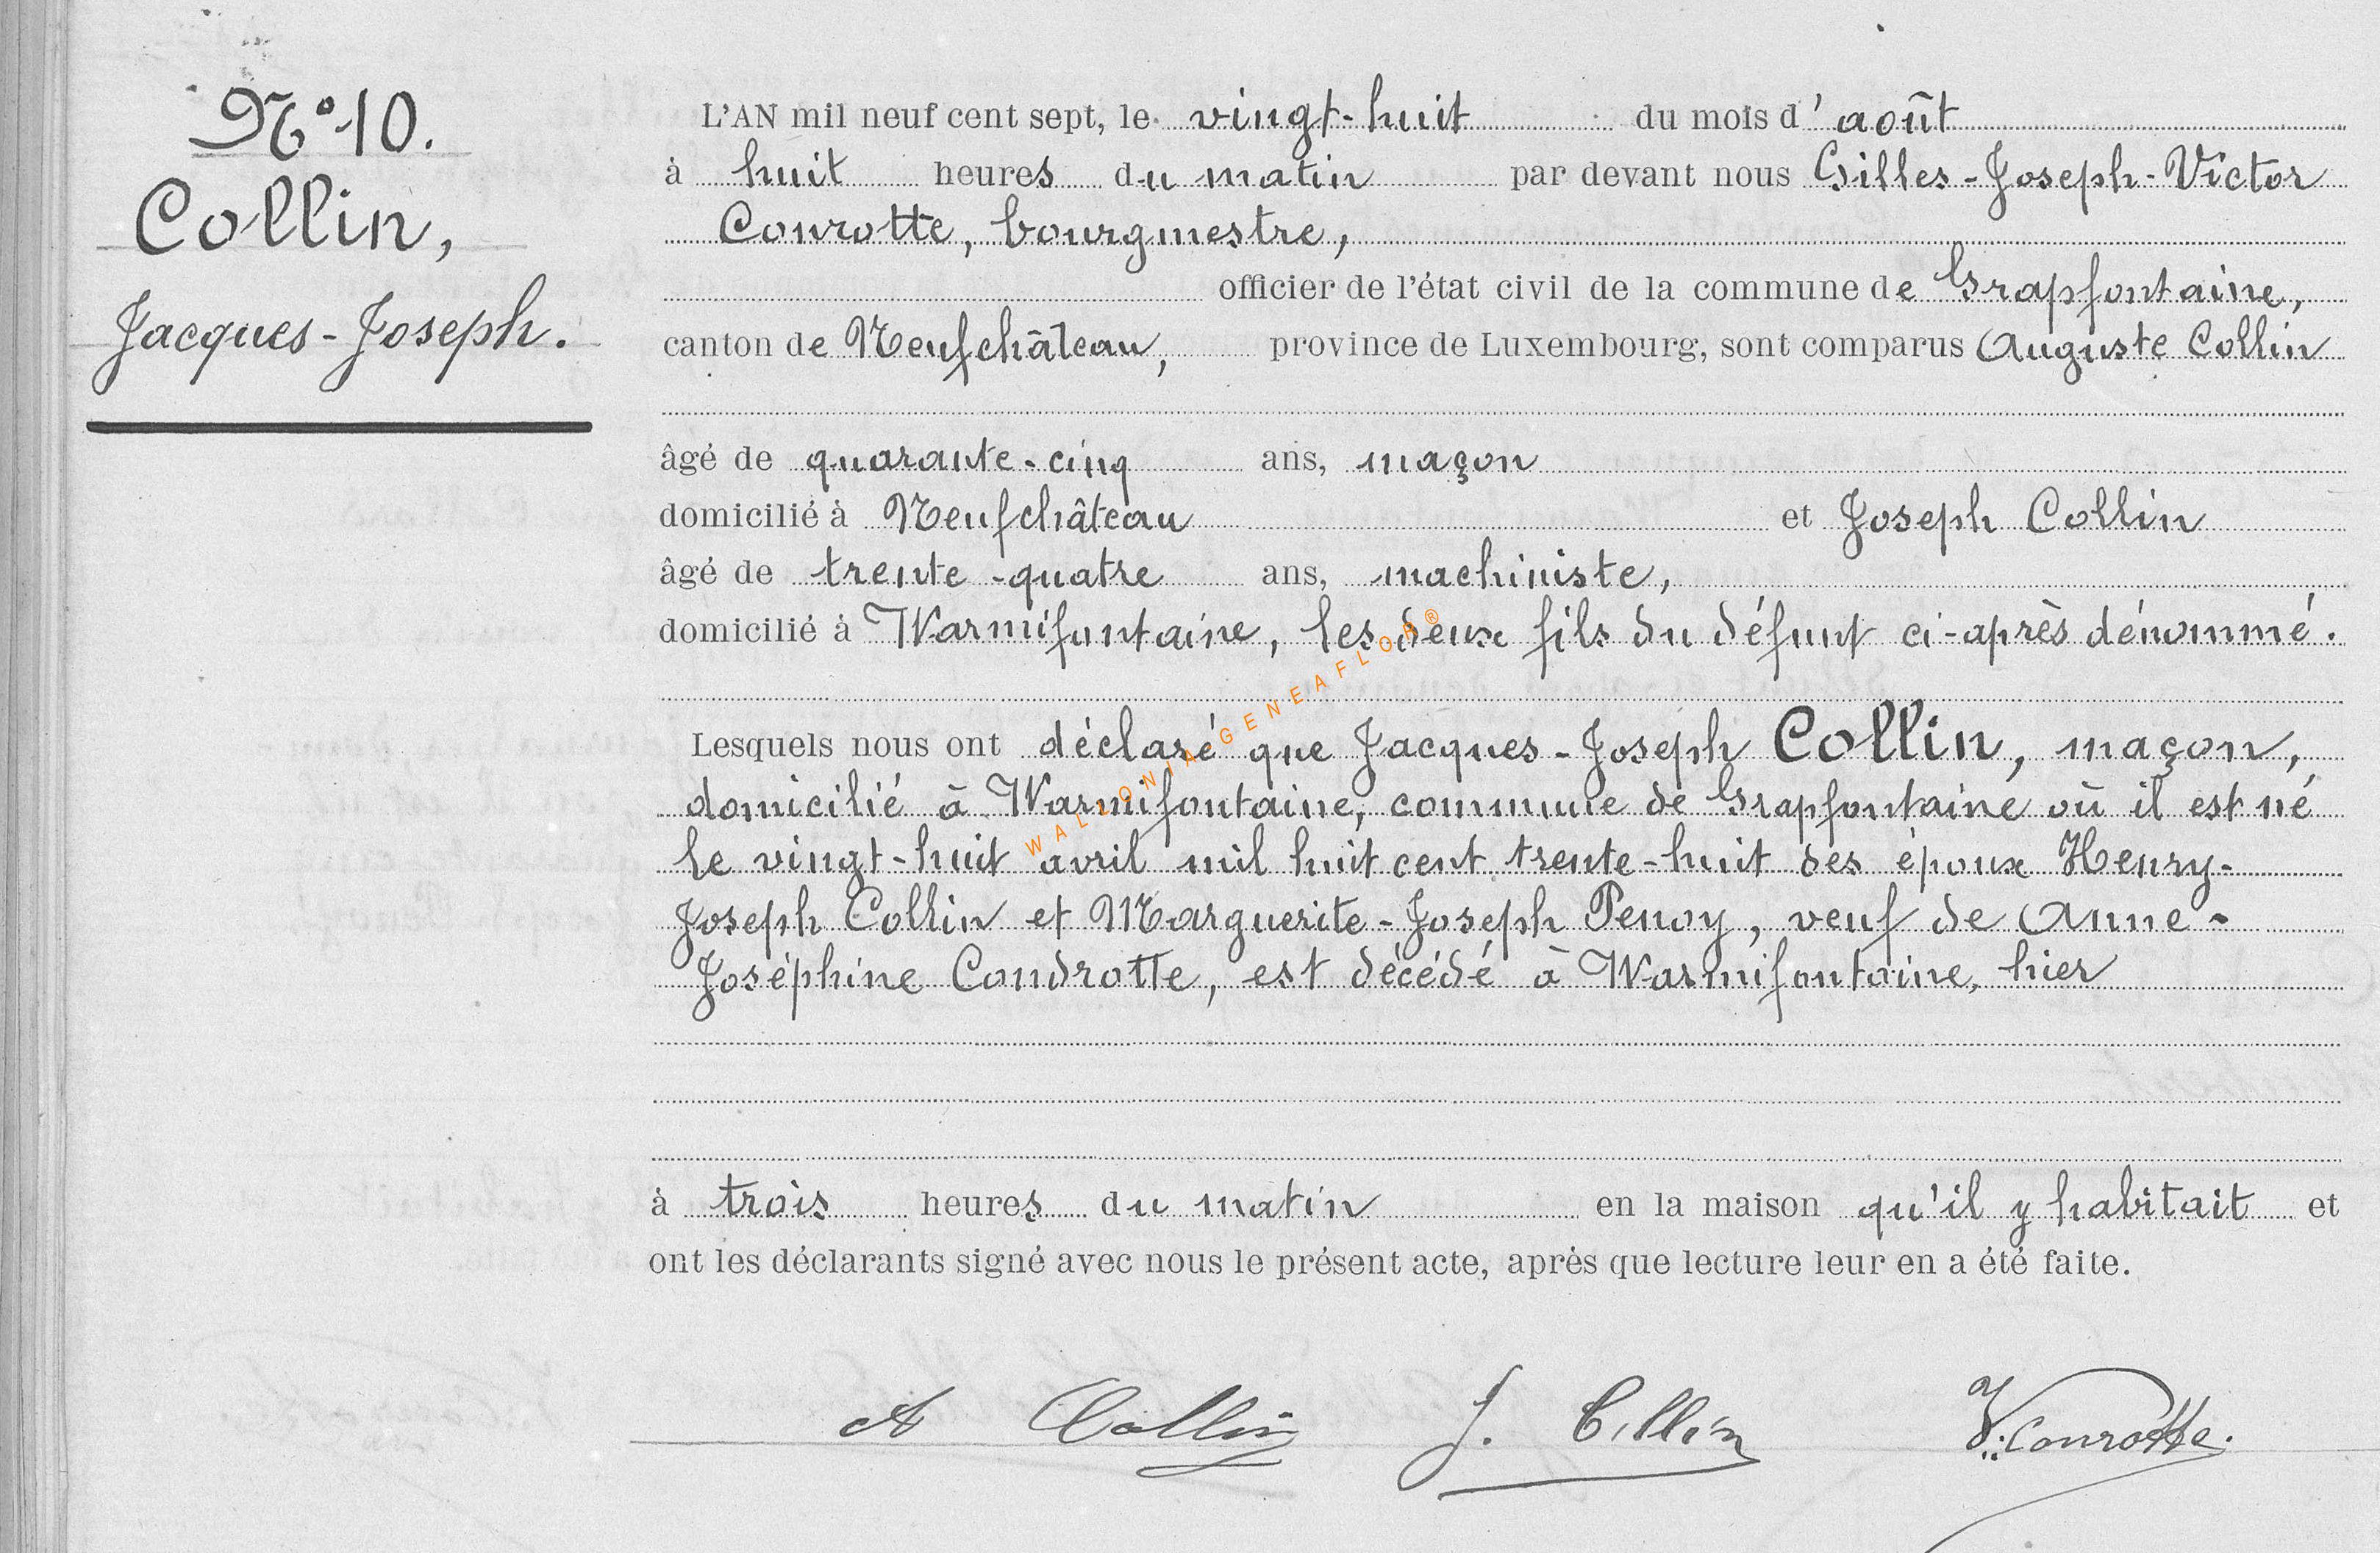 N° 10.
Collin,
Jacques-Joseph.
L'AN mil neuf cent sept, le vingt-huit du mois d'août
à huit heures du matin par devant nous Gilles-Joseph-Victor
Conrotte, bourgmestre,
officier de l'état civil de la commune de Grapfontaine,
canton de Neufchâteau, province de Luxembourg, sont comparus Auguste Collin
âgé de quarante-cinq ans, maçon
domicilié à Neufchâteau et Joseph Collin
âgé de trente-quatre ans, machiniste,
domicilié à Warmifontaine, les deux fils du défunt ci-après dénommé.
Lesquels nous ont déclaré que Jacques-Joseph Collin, maçon,
domicilié à Warmifontaine, commune de Grapfontaine où il est né
le vingt-huit avril mil huit cent trente-huit des époux Henry-
Joseph Collin et Marguerite-Joseph Penoy, veuf de Anne-
Joséphine Condrotte, est décédé à Warmifontaine, hier
à trois heures du matin en la maison qu'il y habitait et
ont les déclarants signé avec nous le présent acte, après que lecture leur en a été faite.
A Collin J. Collin V. Conrotte.
WALLONIA GENEAFLOR®